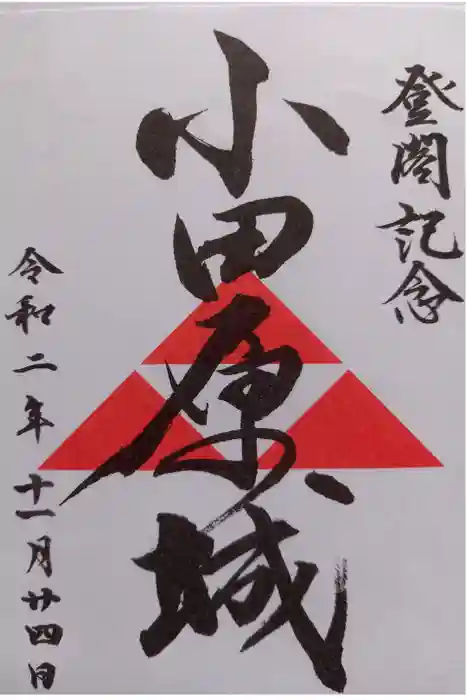 登閣記念
小田原城
令和二年十一月廿四日